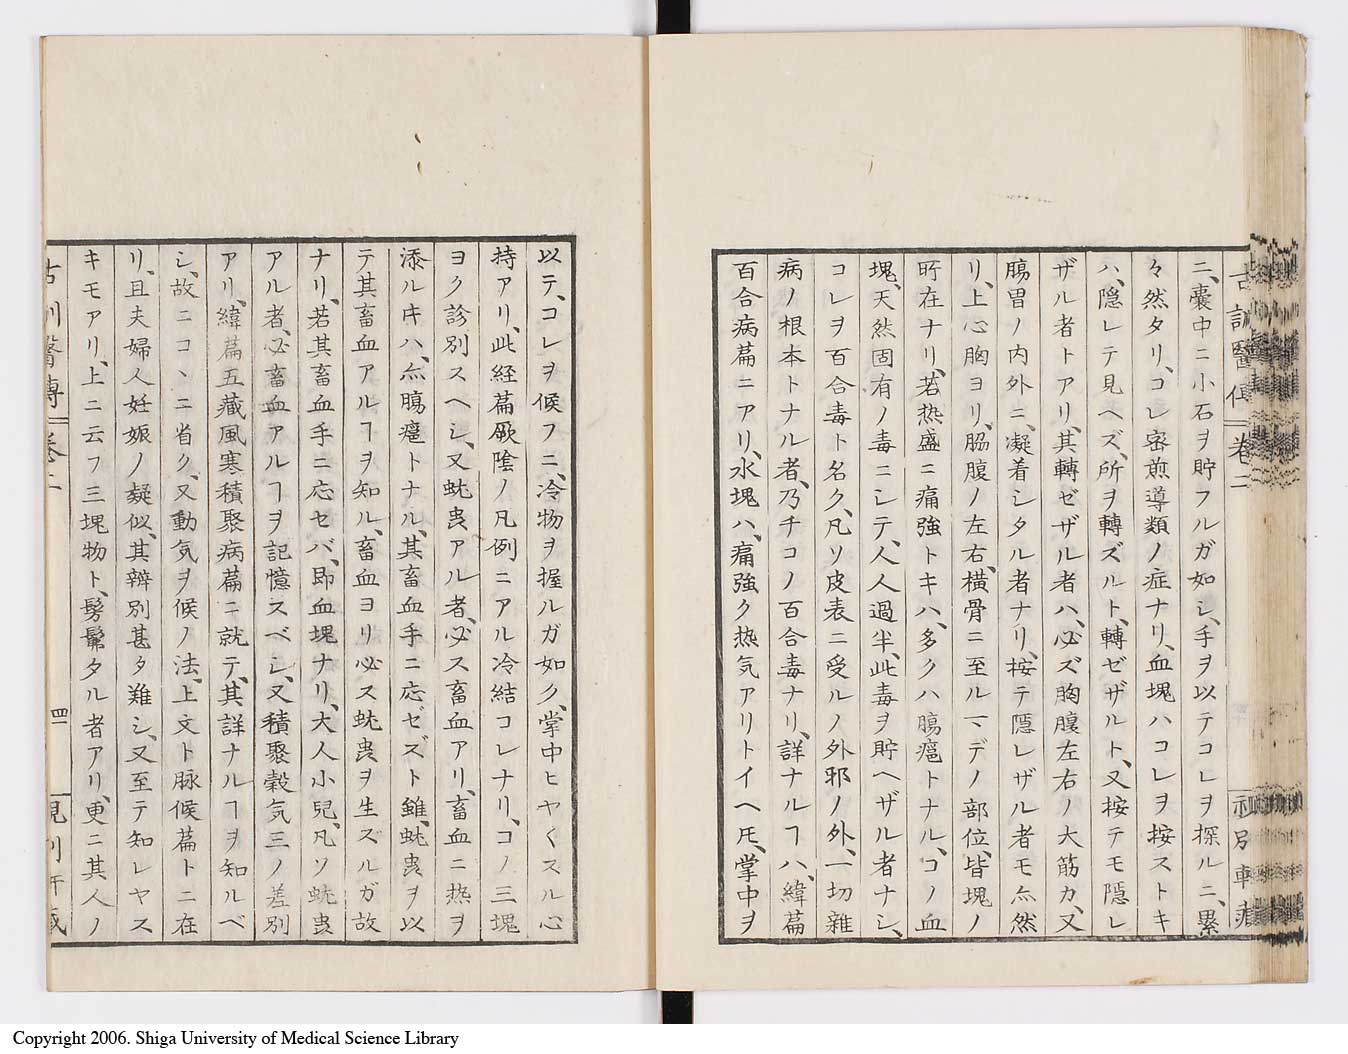 古訓醫傳 卷二
ニ、嚢中ニ小石ヲ貯フルガ如シ、手ヲ以テコレヲ探ルニ、累
々然タリ、コレ密煎導類ノ症ナリ、血塊ハコレヲ按ストキ
ハ、隠レテ見ヘズ、所ヲ轉ズルト、轉ゼザルト、又按テモ隠レ
ザル者トアリ、其轉ゼザル者ハ、必ズ胸腹左右ノ大筋カ、又
腸胃ノ内外ニ、凝着シタル者ナリ、按テ隠レザル者モ亦然
リ、上心胸ヨリ、脇腹ノ左右、横骨ニ至ルマデノ部位、皆塊ノ
所在ナリ、若热盛ニ痛強トキハ、多クハ腸癰トナル、コノ血
塊、天然固有ノ毒ニシテ、人人過半、此毒ヲ貯ヘザル者ナシ、
コレヲ百合毒ト名ク、凡ソ皮表ニ受ルノ外邪ノ外、一切雜
病ノ根本トナル者、乃チコノ百合毒ナリ、詳ナルヿハ、緯篇
百合病篇ニアリ、水塊ハ、痛強ク热気アリトイヘ𪜈、掌中ヲ
以テ、コレヲ候フニ、冷物ヲ握ルガ如ク、掌中ヒヤくスル心
持アリ、此経篇厥陰ノ凡例ニアル冷結コレナリ、コノ三塊
ヨク診別スヘシ、又蚘蟲アル者、必ス畜血アリ、畜血ニ热ヲ
添ルキハ、亦腸癰トナル、其畜血手ニ応ゼズト雖、蚘蟲ヲ以
テ其畜血アルヿヲ知ル、畜血ヨリ必ス蚘蟲ヲ生ズルガ故
ナリ、若其畜血手ニ応セバ、即血塊ナリ、大人小兒、凡ソ蚘蟲
アル者、必畜血アルヿヲ記憶スベシ、又積聚穀気三ノ差別
アリ、緯篇五藏風寒積聚病篇ニ就テ、其詳ナルヿヲ知ルベ
シ、故ニコヽニ省ク、又動気ヲ候ノ法、上文ト脉候篇トニ在
リ、且夫婦人妊娠ノ疑似、其辨別甚タ難シ、又至テ知レヤス
キモアリ、上ニ云フ三塊物ト、髣髴タル者アリ、更ニ其人ノ
古訓醫傳 卷二 四
Copyright 2006. Shiga University of Medical Science Library